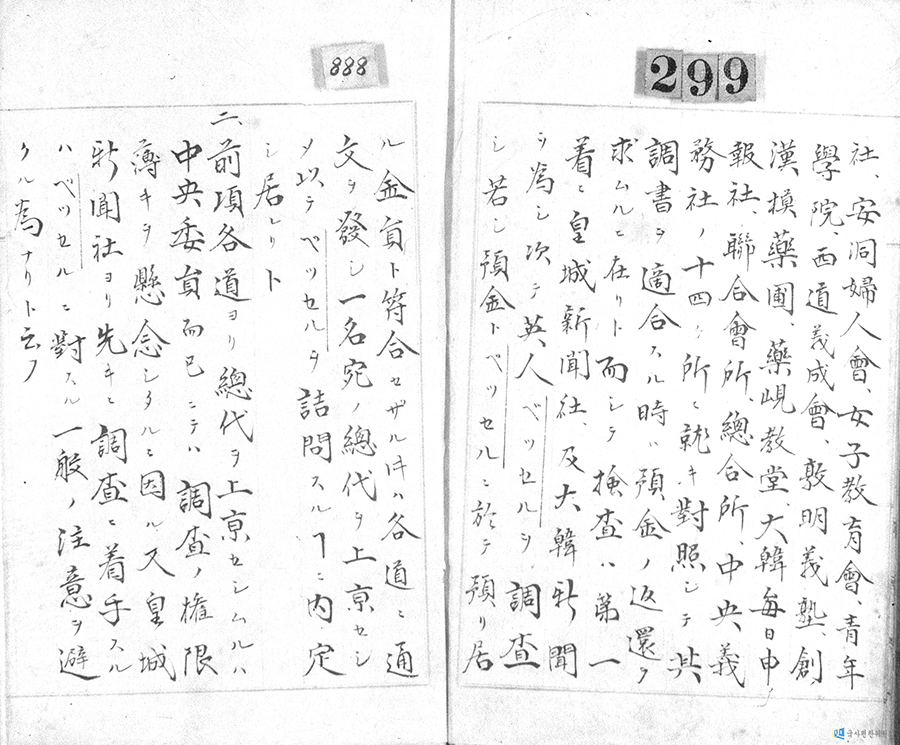 299
社、安洞婦人會、女子教育會、青年
學院、西道義成會、敦明義塾、創
漢摸藥圃、藥峴教堂、大韓毎日申
報社、聯合會所、總合所、中央義
務社ノ十四ケ所ニ就キ對照シテ其
調書ヲ適合スル時ハ預金ノ返還ヲ
求ムルニ在リト而シテ検査ハ第一
着ニ皇城新聞社、及大韓新聞
ヲ為シ次テ英人ベッセルヲ調査
シ若シ預金トベッセルニ於テ預リ居
888
ル金員ト符合セザル件ハ各道ニ通
文ヲ發シ一名宛ノ總代ヲ上京セシ
メ以テベッセルヲ詰問スルヿニ内定
シ居レリト
二、前項各道ヨリ總代ヲ上京セシムルハ
中央委員而已ニテハ調査ノ権限
薄キヲ懸念シタルニ因ル又皇城
新聞社ヨリ先キニ調査ニ着手スル
ハベッセルニ對スル一般ノ注意ヲ避
クル為ナリト云フ
국사편찬위원회